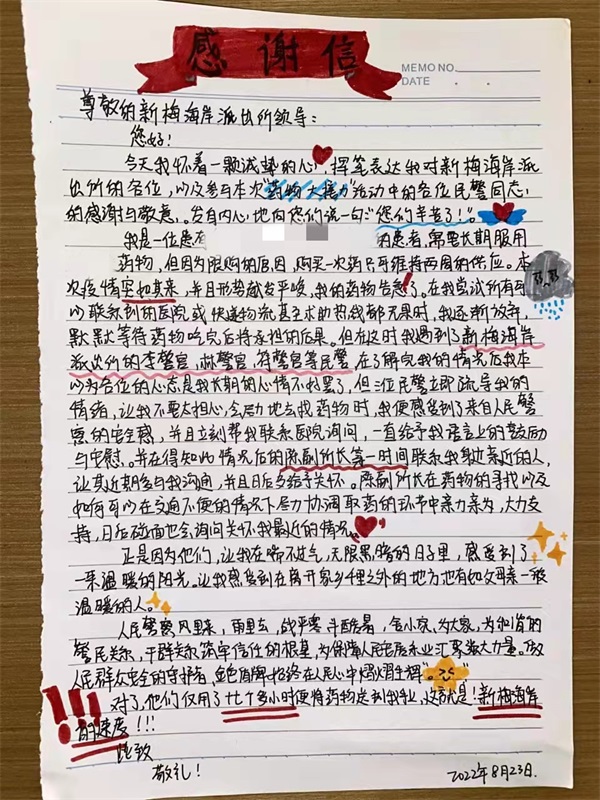 感谢信
MEMO NO.
DATE . .
尊敬的新梅海岸派出所领导：
您好！
今天我怀着一颗诚挚的心，挥笔表达我对新梅海岸派
出所的各位，以及参与本次"药物大接力"活动中的各位民警同志
的感谢与敬意。发自内心地向您们说一句"您们辛苦了！"。
我是一位患有 的患者，需要长期服用
药物，但因为限购的原因，购买一次药只可维持两周的供应。本
次疫情突如其来，并且形势越发严峻，我的药物告急！在我尝试所有可
以联系到的医院或快递物流甚至求助热线都无果时，我逐渐放弃，
默默等待药物吃完后将承担的后果。但在这时我遇到了新梅海岸
派出所的李警官、林警官、符警官等民警，在了解完我的情况后我本
以为各位的心态是我长期的心情不好罢了，但三位民警立即疏导我的
情绪，让我不要太担心，会尽力地去找药物时，我便感受到了来自人民警
察的安全感，并且立刻帮我联系医院询问，一直给予我语言上的鼓励
与安慰。并在得知此情况后的陈副所长第一时间联系我身边亲近的人，
让其近期多与我沟通，并且日后多给予关怀。陈副所长在药物的寻找以及
如何可以在交通不便的情况下尽力协调取药的环节中亲力亲为，大力支
持，日后碰面也会询问关怀我最近的情况。
正是因为他们，让我在喘不过气，无限黑暗的日子里，感受到了
一束温暖的阳光。让我感受到在离开家乡千里之外的地方也有如父母亲一般
温暖的人。
人民警察风里来，雨里去，战严寒，斗酷暑，舍小家，为大家，为和谐的
警民关系、干群关系筑牢信任的根基，为保障人民安居乐业汇聚强大力量。"做
人民群众安全的守护者，金色盾牌始终在人民心中熠熠生辉"。
!!! 对了，他们仅用了七十多小时便将药物送到我手，这就是！新梅海岸
的速度！！！
此致
敬礼！
2022年8月23日.